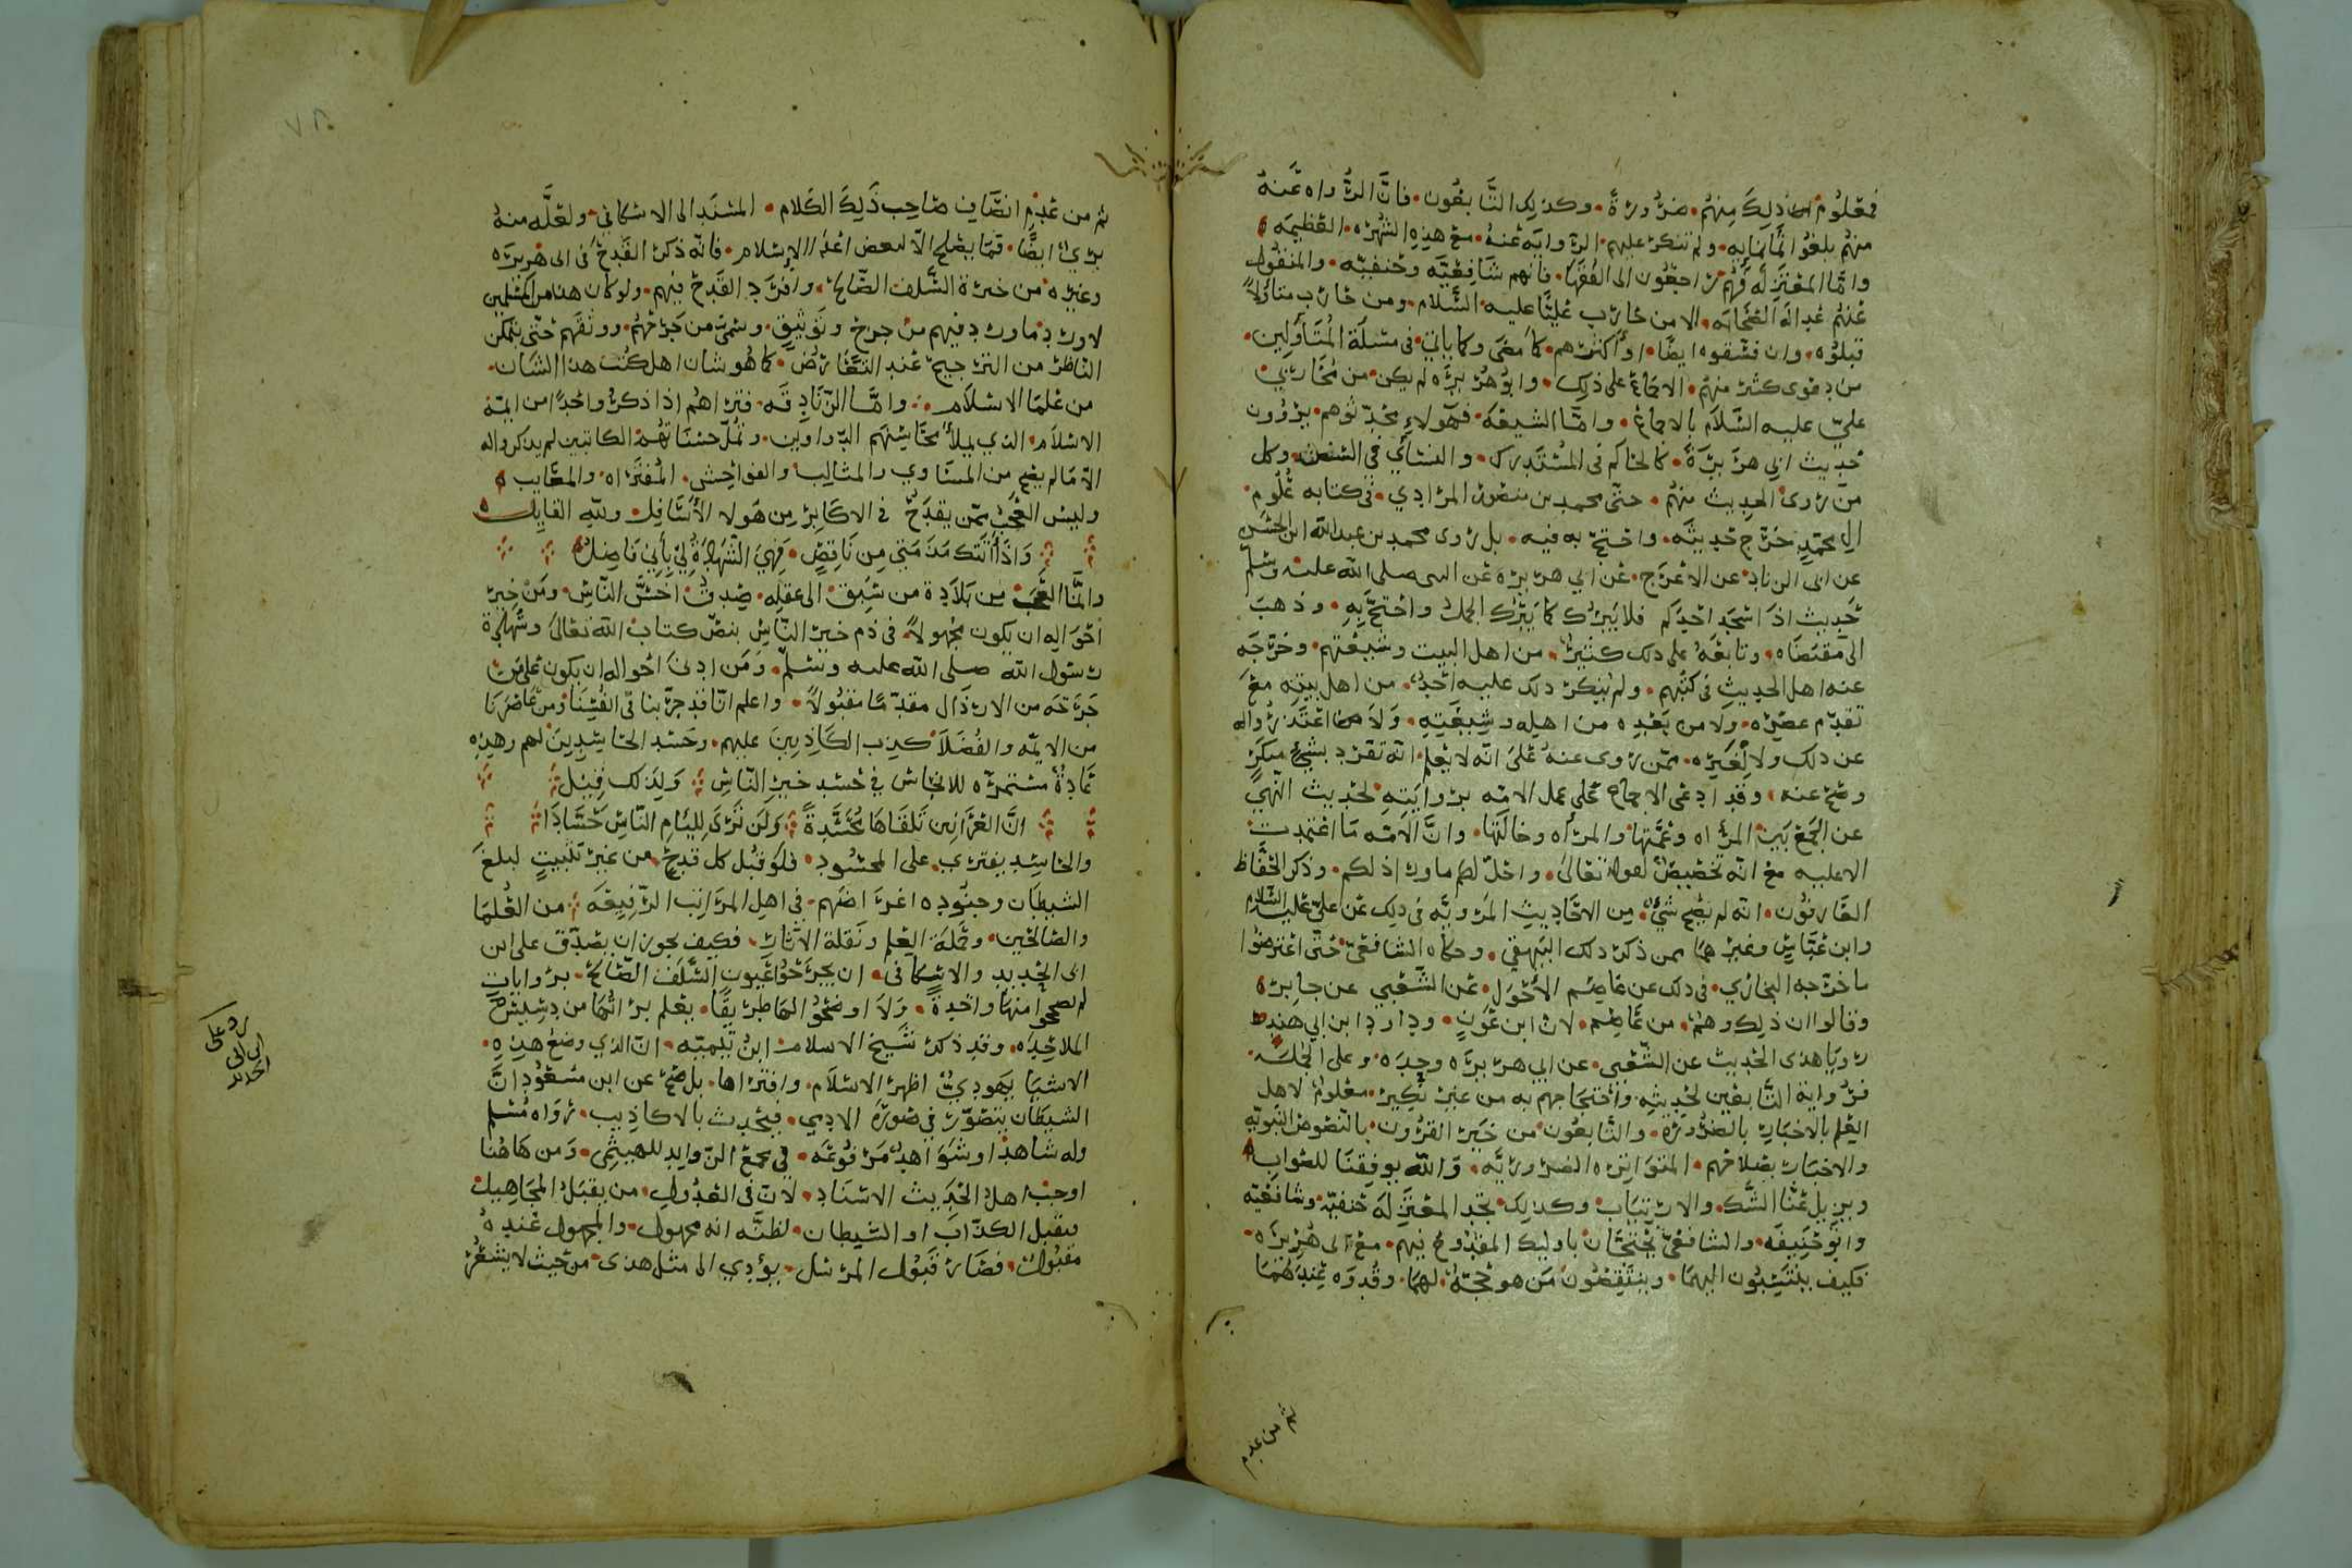 فمعلوم ذلك منهم ضرورة وكذلك التابعون فان الرواه عنه
منهم بلغوا ثمانمايه ولم تنكر عليهم الروايه عنه مع هذه الشهره العظيمه
واما المعتزله فهم راجعون الى الفقها فانهم شافعيه وحنفيه والمنقول
عنهم عداله الصحابه الا من حارب عليا عليه السلام ومن حارب متاولاً
قبلوه وان فسقوه ايضا او اكثرهم كما مضى وكما ياتي في مسئلة المتاولين
من دعوى كثير منهم الاجماع على ذلك وابو هريره لم يكن من محاربي
علي عليه السلام بالاجماع واما الشيعه فهولاء محدثوهم يروون
حديث ابي هريرة كالحاكم في المستدرك والنسائي في السنن وكل
من روى الحديث منهم حتى محمد بن منصور المرادي في كتابه علوم
ال محمد خرج حديثه واحتج به فيه بل روى محمد بن عبدالله ابن الحسن
عن ابى الزناد عن الاعرج عن ابي هريره عن النبى صلى الله عليه وسلم
حديث اذا سجد احدكم فلا يبرك كما يبرك الجمل واحتج به وذهب
الى مقتضاه وتابعه على ذلك كثير من اهل البيت وشيعتهم وخرجه
عنه اهل الحديث في كتبهم ولم ينكر ذلك عليه احد من اهل بيته مع
تقدم عصره ولا من بعده من اهله وشيعته ولا اعتذر واله
عن ذلك ولا لغيره ممن روى عنه على انه لا يعلم انه تفرد بشيء منكر
وصح عنه وقد ادعى الاجماع على عمل الامه بروايته لحديث النهي
عن الجمع بين المراه وعمتها والمراه وخالتها وان الامه ما اعتمدت
الا عليه مع انه تخصيص لقوله تعالى واحل لكم ماورا ذلكم وذكر الحفاظ
العارفون انه لم يصح شيء من الاحاديث المرويه في ذلك عن علي عليه السلام
وابن عباس وغيرهما ممن ذكر ذلك البيهقي وحكاه الشافعي حتى اعترضوا
ما خرجه البخاري في ذلك عن عاصم الاحول عن الشعبي عن جابر
وقالوا ان ذلك وهم من عاصم لان ابن عون وداود ابن ابي هند
رويا هذى الحديث عن الشعبى عن ابي هريره وحده وعلى الجمله
فرواية التابعين لحديثه واحتجاجهم به من غير نكير معلوم لاهل
العلم بالاخبار بالضروره والتابعون من خير القرون بالنصوص النبويه
والاخبار بصلاحهم المتواتره الضروريه والله يوفقنا للصواب
ويزيل عنا الشك والارتياب وكذلك تجد المعتزله حنفيه وشافعيه
وابو حنيفه والشافعي يحتجان باوليك المقدوح فيهم مع ابى هريره
فكيف ينتسبون اليهما وينتقصون من هو حجة لهما وقدوه عندهما
ثم من عدم
ثم من عدم انصاف صاحب ذلك الكلام المسند الى الاسكافي ولعله منه
بريء ايضا فما يصلح الا لبعض اعداء الاسلام فانه ذكر القدح في ابى هريره
وغيره من خيرة السلف الصالح وافرد القدح فيهم ولو كان هذا من المسلمين
لاورد ما ورد فيهم من جرح وتوثيق وسمى من جرحهم ووثقهم حتى يتمكن
الناظر من الترجيح عند التعارض كما هو شان اهل كتب هذا الشان
من علما الاسلام واما الزنادقه فتراهم اذا ذكروا احدا من ايمة
الاسلام الذي يملأ محاسنهم الدواوين وتمل حسناتهم الكاتبين لم يذكروا له
الا مالم يصح من المساوي والمثالب والفواحش المفتراه والمعايب
وليس العجب ممن يقدح في الاكابر من هولا الاسافل ولله القايل
واذا اتتك مذمتي من ناقص فهي الشهادة لي باني فاضل
وانما العجب من بلادة من سبق الى عقله صدق اخس الناس ومن خير
احواله ان يكون مجهولا في ذم خير الناس بنص كتاب الله تعالى وشهادة
رسول الله صلى الله عليه وسلم ومن ادنى احواله ان يكون على من
جرحه من الارذال مقدما مقبولا واعلم انا قد جربنا في انفسنا ومن عاصرنا
من الايمه والفضلا كذب الكاذبين عليهم وحسد الحاسدين لهم وهذه
عادة مستمره للانجاس في حسد خير الناس ولذلك قيل
ان العرانين تلقاها محسدة ولن ترى للئام الناس حسادا
والحاسد يفترى على المحسود فلو قبل كل قدح من غير تثبيت لبلغ
الشيطان وجنوده اغراضهم في اهل المراتب الرفيعه من العلما
والصالحين وحملة العلم ونقلة الاثار فكيف يجوز ان يصدق على ابن
ابى الحديد والاسكافى ان يجرحوا عيون السلف الصالح بروايات
لم يصححوا منها واحدة ولا اوضحوا لها طريقا يعلم براتها من دسيس
الملاحده وقد ذكر شيخ الاسلام ابن تيميه ان الذي وضع هذه
الاشيا يهودي اظهر الاسلام وافتراها بل صح عن ابن مسعود ان
الشيطان يتصور في صورة الادمي فيحدث بالاكاذيب رواه مسلم
وله شاهد او شواهد مرفوعه في مجمع الزوايد للهيثمى ومن هاهنا
اوجب اهل الحديث الاسناد لان في العدول من يقبل المجاهيل
فيقبل الكذاب او الشيطان لظنه انه مجهول والمجهول عنده
مقبول فصار قبول المرسل يؤدي الى مثل هذى من حيث لا يشعر
رد على
ابن ابى
الحديد